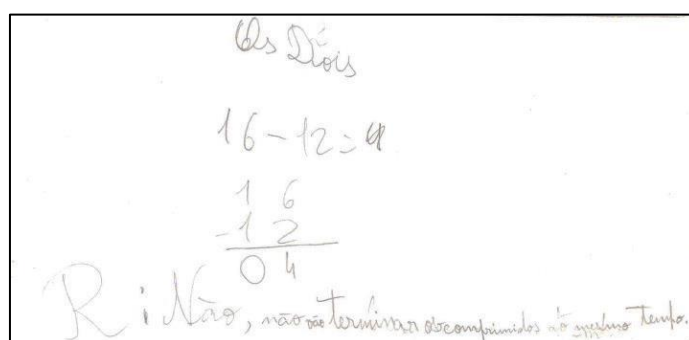 Os Dóis
16-12=4
1 6
-1 2
0 4
R: Não, não vão terminar os comprimidos ao mesmo tempo.